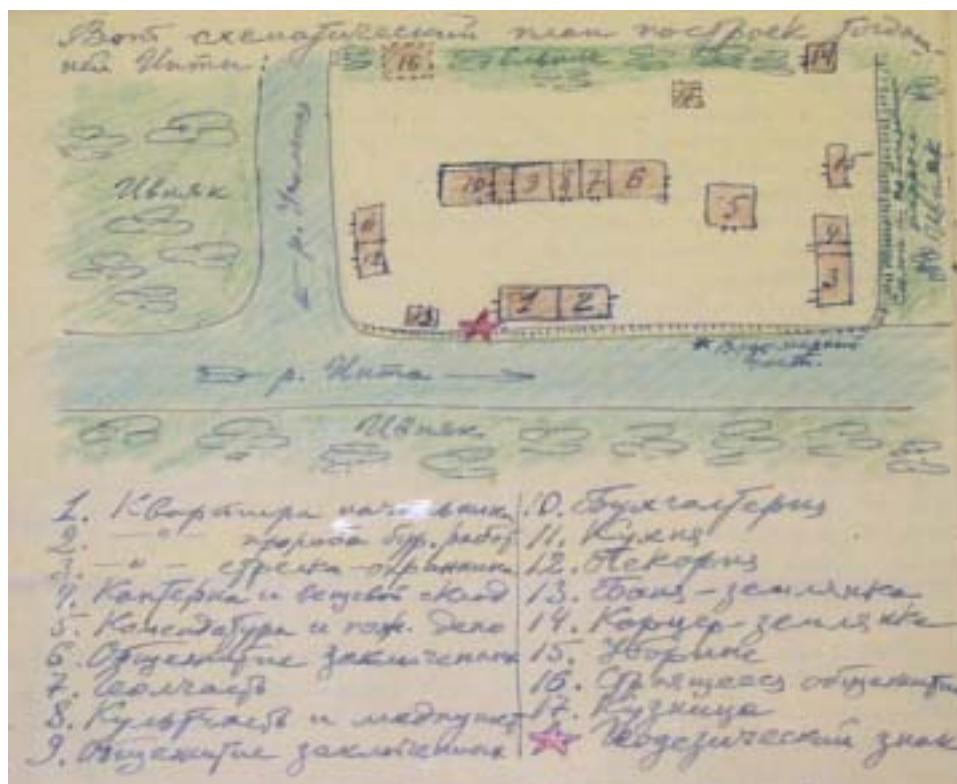 Вот схематический план построек тогдаш-
ней Инты:
16
14
17
Ивняк
р. Угольная
10 9 8 7 6
15
5
11
12
4
3
13
1 2
Водомерный
пост.
р. Инта
Ивняк
Ивняк
1. Квартира начальника
2. —"— прораба бур. работ
3. —"— стрелка-охранника
4. Каптерка и вещевой склад
5. Комендатура и пож. депо
6. Общежитие заключенных
7. Санчасть
8. Культчасть и медпункт
9. Общежитие заключенных
10. Бухгалтерия
11. Кухня
12. Пекарня
13. Баня-землянка
14. Карцер-землянка
15. Уборные
16. Строящееся общежитие
17. Кузница
Геодезический знак